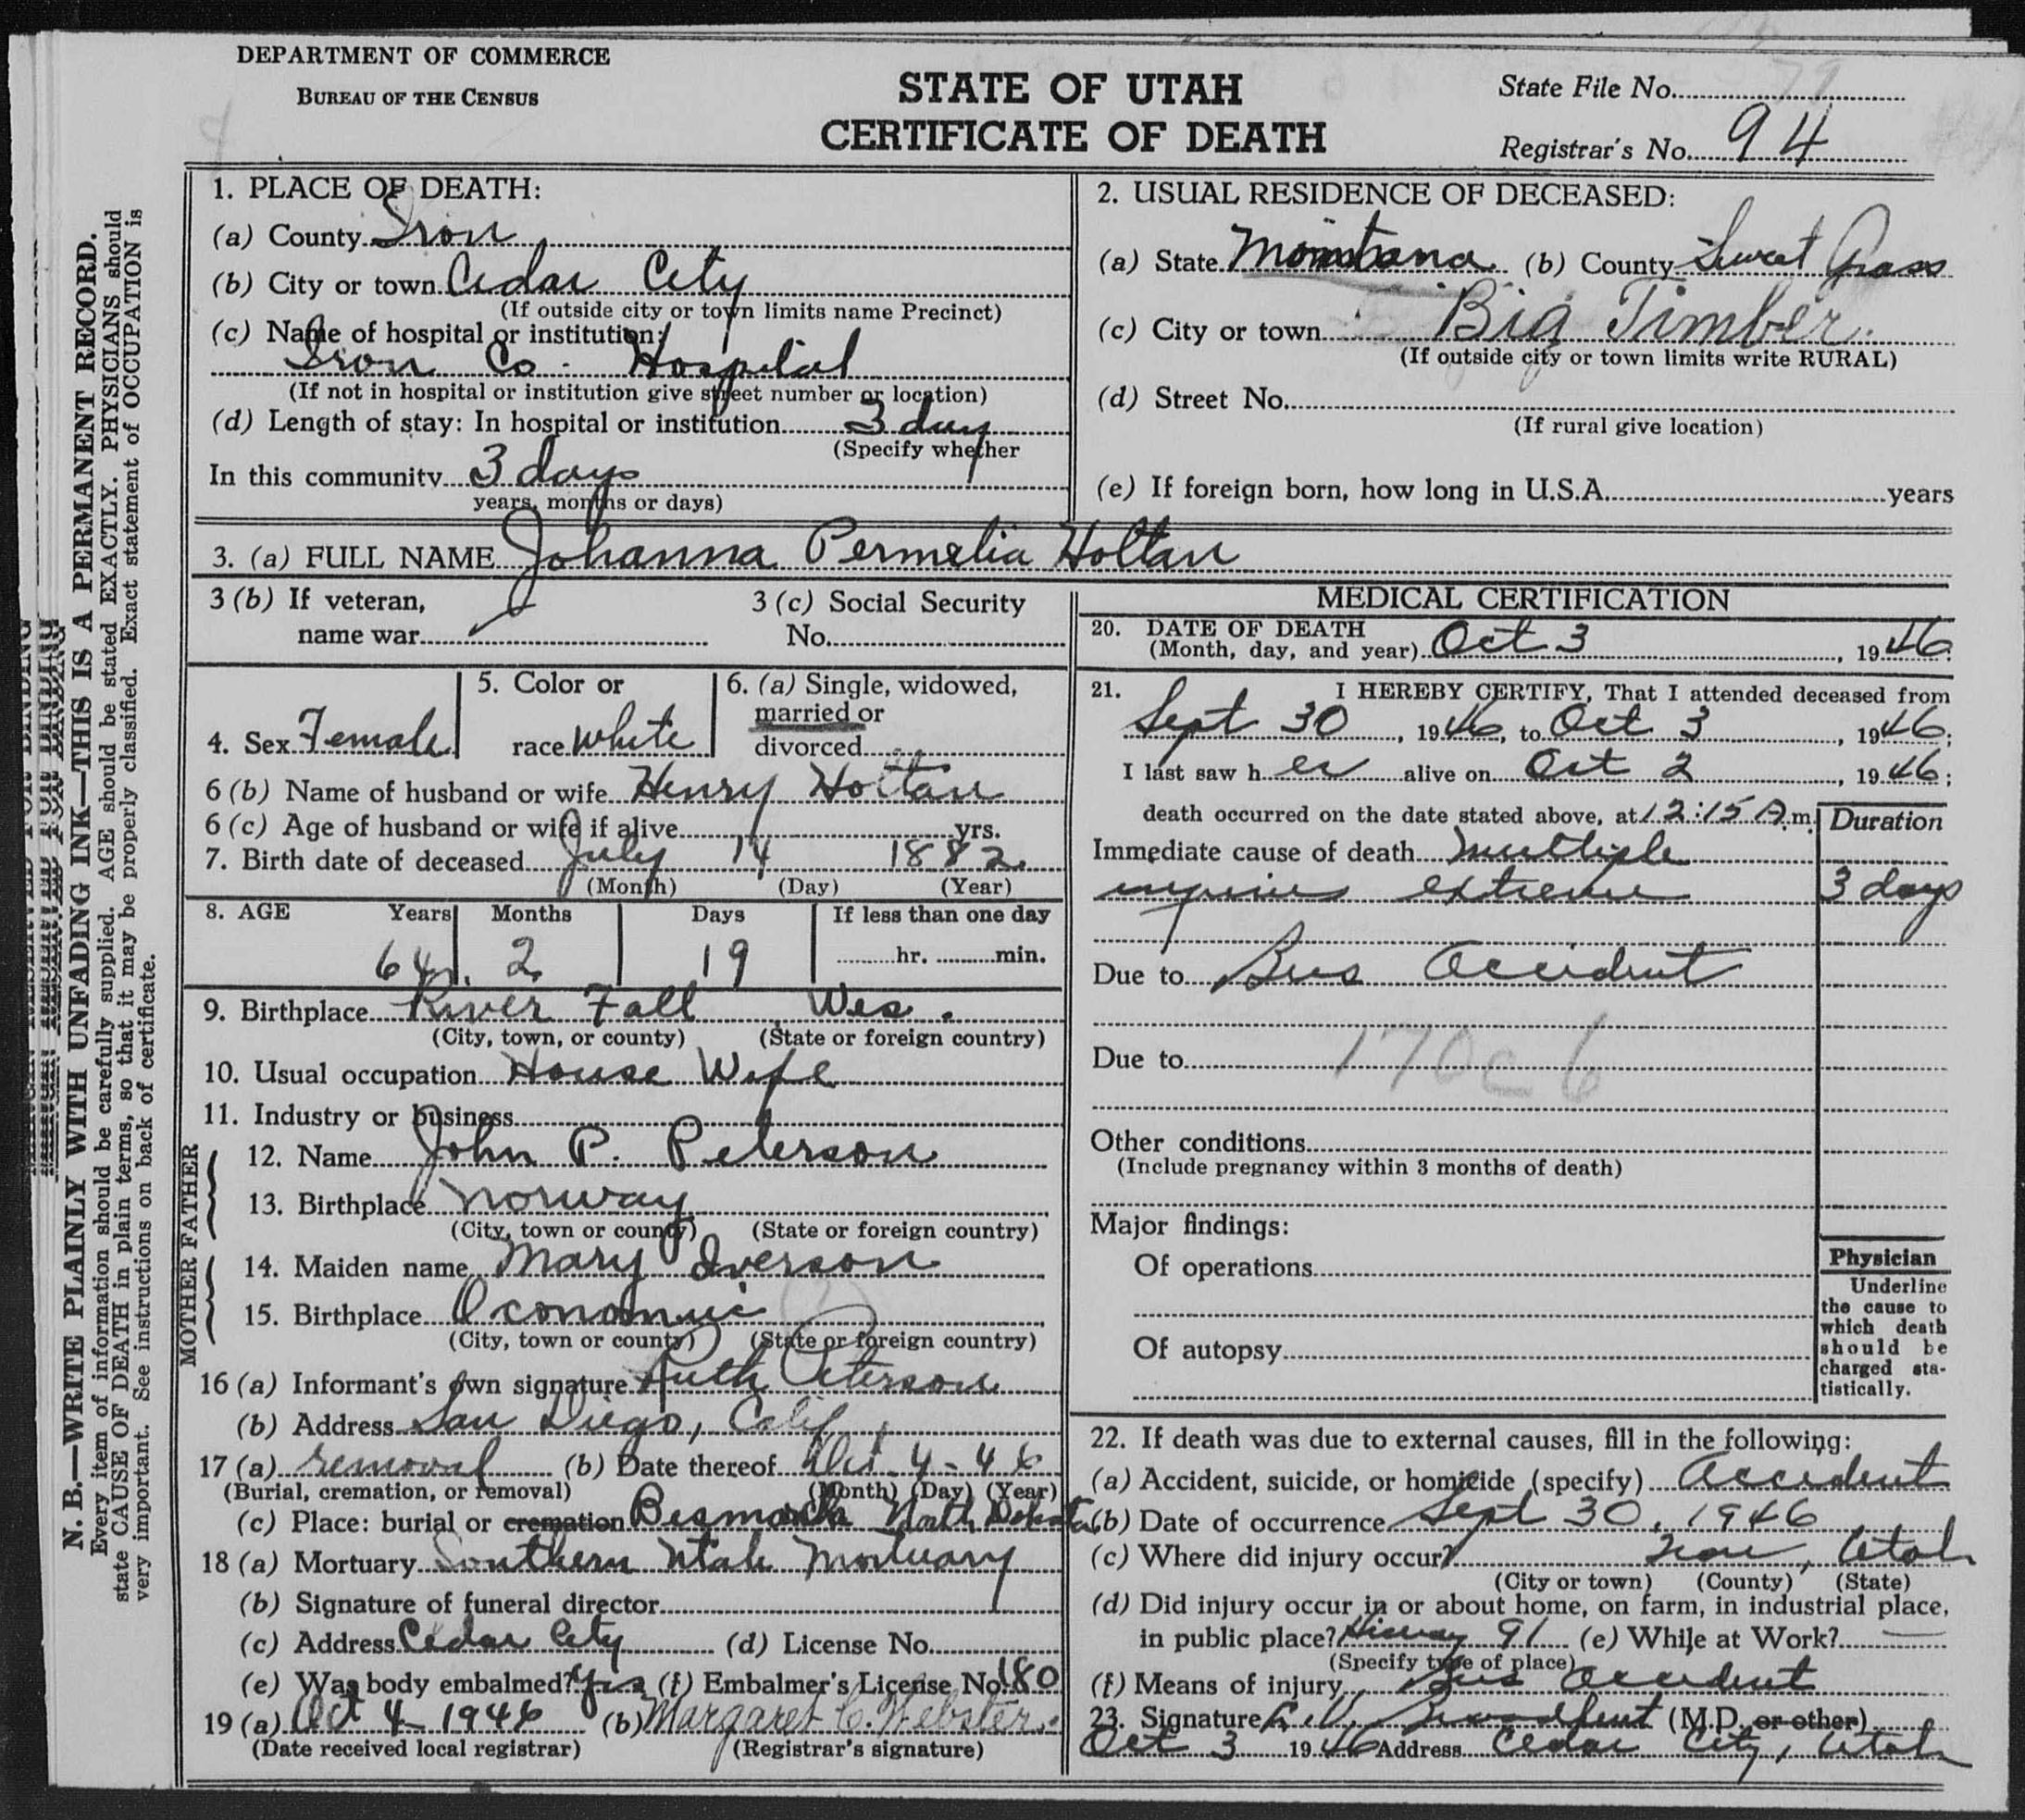 DEPARTMENT OF COMMERCE
BUREAU OF THE CENSUS
STATE OF UTAH
CERTIFICATE OF DEATH
State File No. 79
Registrar's No. 94
N. B.—WRITE PLAINLY WITH UNFADING INK—THIS IS A PERMANENT RECORD.
Every item of information should be carefully supplied. AGE should be stated EXACTLY. PHYSICIANS should
state CAUSE OF DEATH in plain terms, so that it may be properly classified. Exact statement of OCCUPATION is
very important. See instructions on back of certificate.
1. PLACE OF DEATH:
(a) County Iron
(b) City or town Cedar City
(If outside city or town limits name Precinct)
(c) Name of hospital or institution:
Iron Co. Hospital
(If not in hospital or institution give street number or location)
(d) Length of stay: In hospital or institution 3 day
(Specify whether
In this community 3 days
years, months or days)
2. USUAL RESIDENCE OF DECEASED:
(a) State Montana (b) County Sweet Grass
(c) City or town Big Timber
(If outside city or town limits write RURAL)
(d) Street No.
(If rural give location)
(e) If foreign born, how long in U.S.A. years
3. (a) FULL NAME Johanna Permelia Holtan
3 (b) If veteran,
name war
3 (c) Social Security
No.
4. Sex Female
5. Color or
race White
6. (a) Single, widowed,
married or
divorced
6 (b) Name of husband or wife Henry Holtan
6 (c) Age of husband or wife if alive yrs.
7. Birth date of deceased July 14 1882
(Month) (Day) (Year)
8. AGE Years Months Days If less than one day
64 2 19 hr. min.
9. Birthplace River Fall Wis.
(City, town, or county) (State or foreign country)
10. Usual occupation House Wife
11. Industry or business
FATHER
12. Name John P. Peterson
13. Birthplace Norway
(City, town or county) (State or foreign country)
MOTHER
14. Maiden name Mary Iverson
15. Birthplace (?)
(City, town or county) (State or foreign country)
16 (a) Informant's own signature Ruth Peterson
(b) Address San Diego, Calif
17 (a) removal (b) Date thereof Oct - 4 - 46
(Burial, cremation, or removal) (Month) (Day) (Year)
(c) Place: burial or cremation Bismarck North Dakota
18 (a) Mortuary Southern Utah Mortuary
(b) Signature of funeral director
(c) Address Cedar City (d) License No.
(e) Was body embalmed? Yes (f) Embalmer's License No. 180
19 (a) Oct 4 1946 (b) Margaret C. Webster
(Date received local registrar) (Registrar's signature)
MEDICAL CERTIFICATION
20. DATE OF DEATH
(Month, day, and year) Oct 3, 1946.
21. I HEREBY CERTIFY, That I attended deceased from
Sept 30, 1946, to Oct 3, 1946;
I last saw her alive on Oct 2, 1946;
death occurred on the date stated above, at 12:15 A.m.
Duration
Immediate cause of death Multiple
injuries extreme 3 days
Due to Bus Accident
170c6
Due to
Other conditions
(Include pregnancy within 3 months of death)
Major findings:
Of operations
Of autopsy
Physician
Underline
the cause to
which death
should be
charged sta-
tistically.
22. If death was due to external causes, fill in the following:
(a) Accident, suicide, or homicide (specify) Accident
(b) Date of occurrence Sept 30, 1946
(c) Where did injury occur? Iron, Utah
(City or town) (County) (State)
(d) Did injury occur in or about home, on farm, in industrial place,
in public place? Hiway 91 (e) While at Work?
(Specify type of place)
(f) Means of injury Bus Accident
23. Signature (M.D. or other)
Oct 3 1946 Address Cedar City, Utah